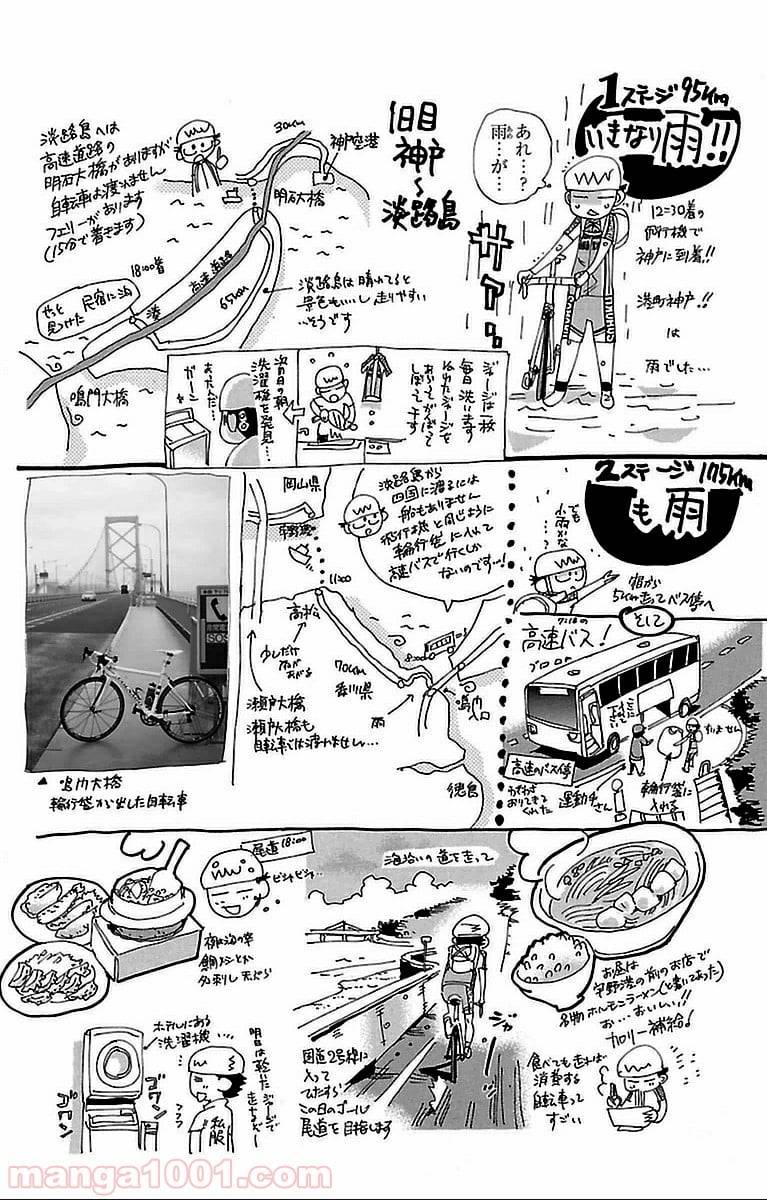 1ステージ 95km
いきなり雨!!
あれ…?
雨…が…
12=30着の
飛行機で
神戸に到着!!
港町神戸!!
は
雨でした…
サアァ…
1日目
神戸
～
淡路島
30km
神戸空港
明石大橋
淡路島へは
高速道路の
明石大橋がありますが
自転車は渡れません
フェリーがあります
(15分で着きます)
18:00着
高速道路
65km
やっと
見つけた民宿に泊
湊
鳴門大橋
淡路島は晴れてると
景色もいいし走りやすい
…そうです
ジャージは一枚
毎日洗います
しぼって干す
翌日の朝
洗濯機を発見…
あったんだ…
ガーン
2ステージ 175km
も雨
でも
小雨かな
…
宿から
5km走ってバス停へ
そして
7:18の
高速バス!
ブロロロ
高速のバス停
運動手さん
すいません
輪行袋に
入れる
淡路島から
四国に渡るには
船もありません
飛行機と同じように
輪行袋に入れて
高速バスで行くしか
ないのです…!
岡山県
宇野港
11:00
高松
少しだけ
雨があがる
70km
香川県
雨
8:00
鳴門
徳島
瀬戸大橋
瀬戸大橋も
自転車では渡れません…
SOS
▲鳴門大橋
輪行袋から出した自転車
尾道 18:00
ビシャビシャ…
海沿いの道を走って
ジャ
国道2号線に
入って
ひたすら
この日のゴール
尾道を目指します
お昼は
宇野港の前のお店で
名物ホルモンラーメン(と書いてあった)
お…おいしい!!
カロリー補給!
食べても走れば
消費する
自転車って
すごい
ホテルにある
洗濯機…
ゴウン
ゴウン
私服
明日は乾いたジャージで
走るぞー
manga1001.com